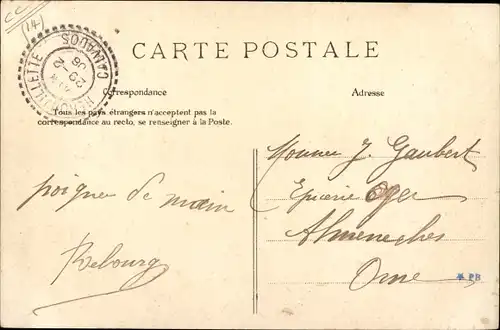 CC
(14)
HÉROUVILLETTE
CALVADOS
CARTE POSTALE
Correspondance
Adresse
Tous les pays étrangers n'acceptent pas la
correspondance au recto, se renseigner à la Poste.
poignée de main
Rebourg
J. Gaubert
Epicerie
Almenêches
Orne
PB